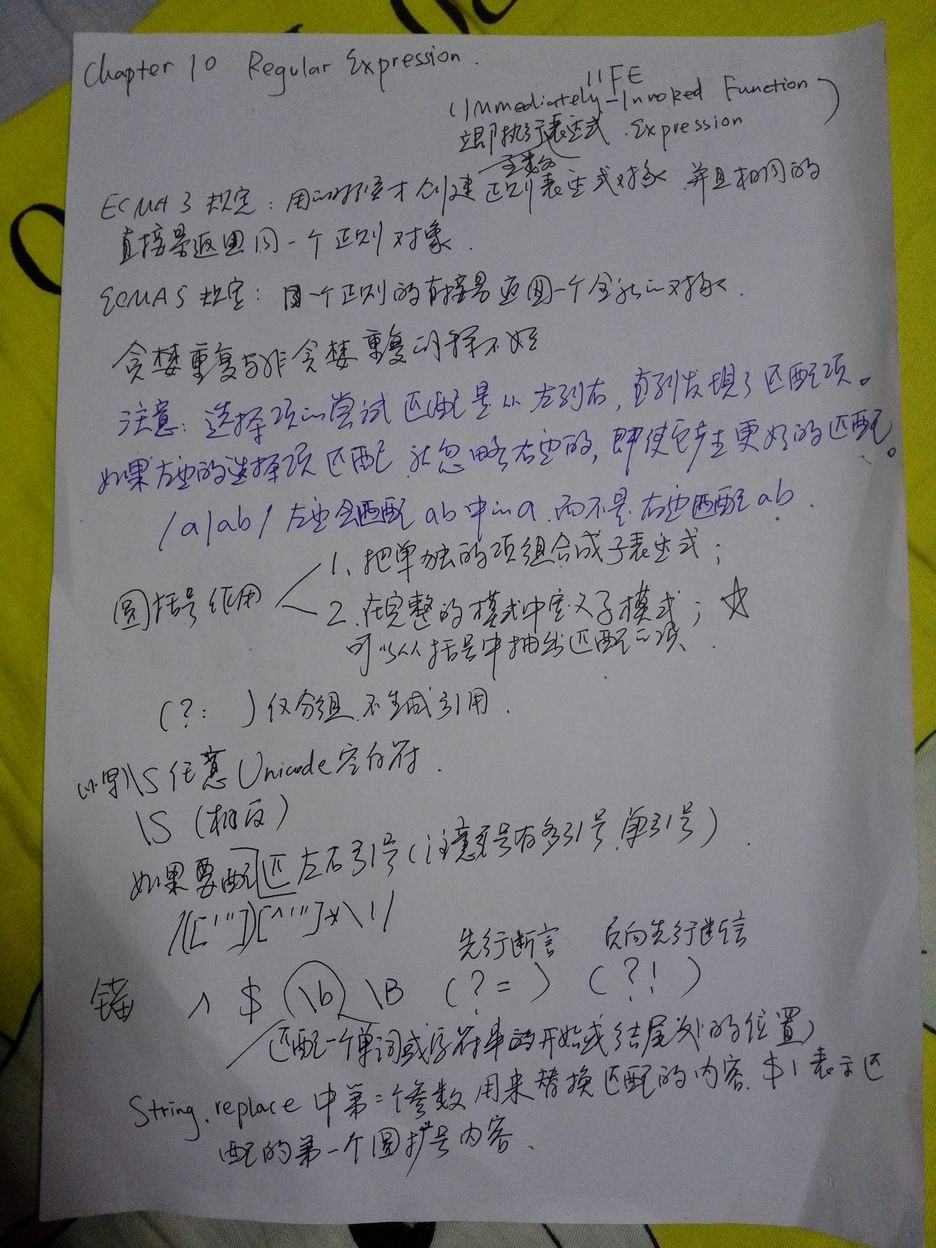 Chapter 10 Regular Expression.
IIFE
(Immediately-Invoked Function
立即执行表达式 Expression)
函数
ECMA 3 规定：用的时候才创建正则表达式对象 并且相同的
直接量返回同一个正则对象.
ECMA5 规定：同一个正则的直接量返回一个全新的对象.
贪婪重复与非贪婪重复
注意：选择项的尝试匹配是从左到右，直到发现了匹配项。
如果左边的选择项匹配 就忽略右边的，即使它产生更好的匹配。
/a|ab/ 左边会匹配ab中的a. 而不是右边匹配ab.
圆括号作用
1. 把单独的项组合成子表达式；
2. 在完整的模式中定义子模式； ☆
可以从括号中抽出匹配的项.
(?: ) 仅分组 不生成引用.
(小写)\s 任意Unicode空白符.
\S (相反)
如果要配匹左右引号(注意引号有多引号, 单引号).
/(['"])[^'"]*\1/
先行断言 负向先行断言
锚 ^ $ \b \B (?= ) (?! )
匹配一个单词或字符串的开始或结尾处的位置)
String.replace 中第二个参数用来替换匹配的内容. $1表示匹
配的第一个圆括号内容.